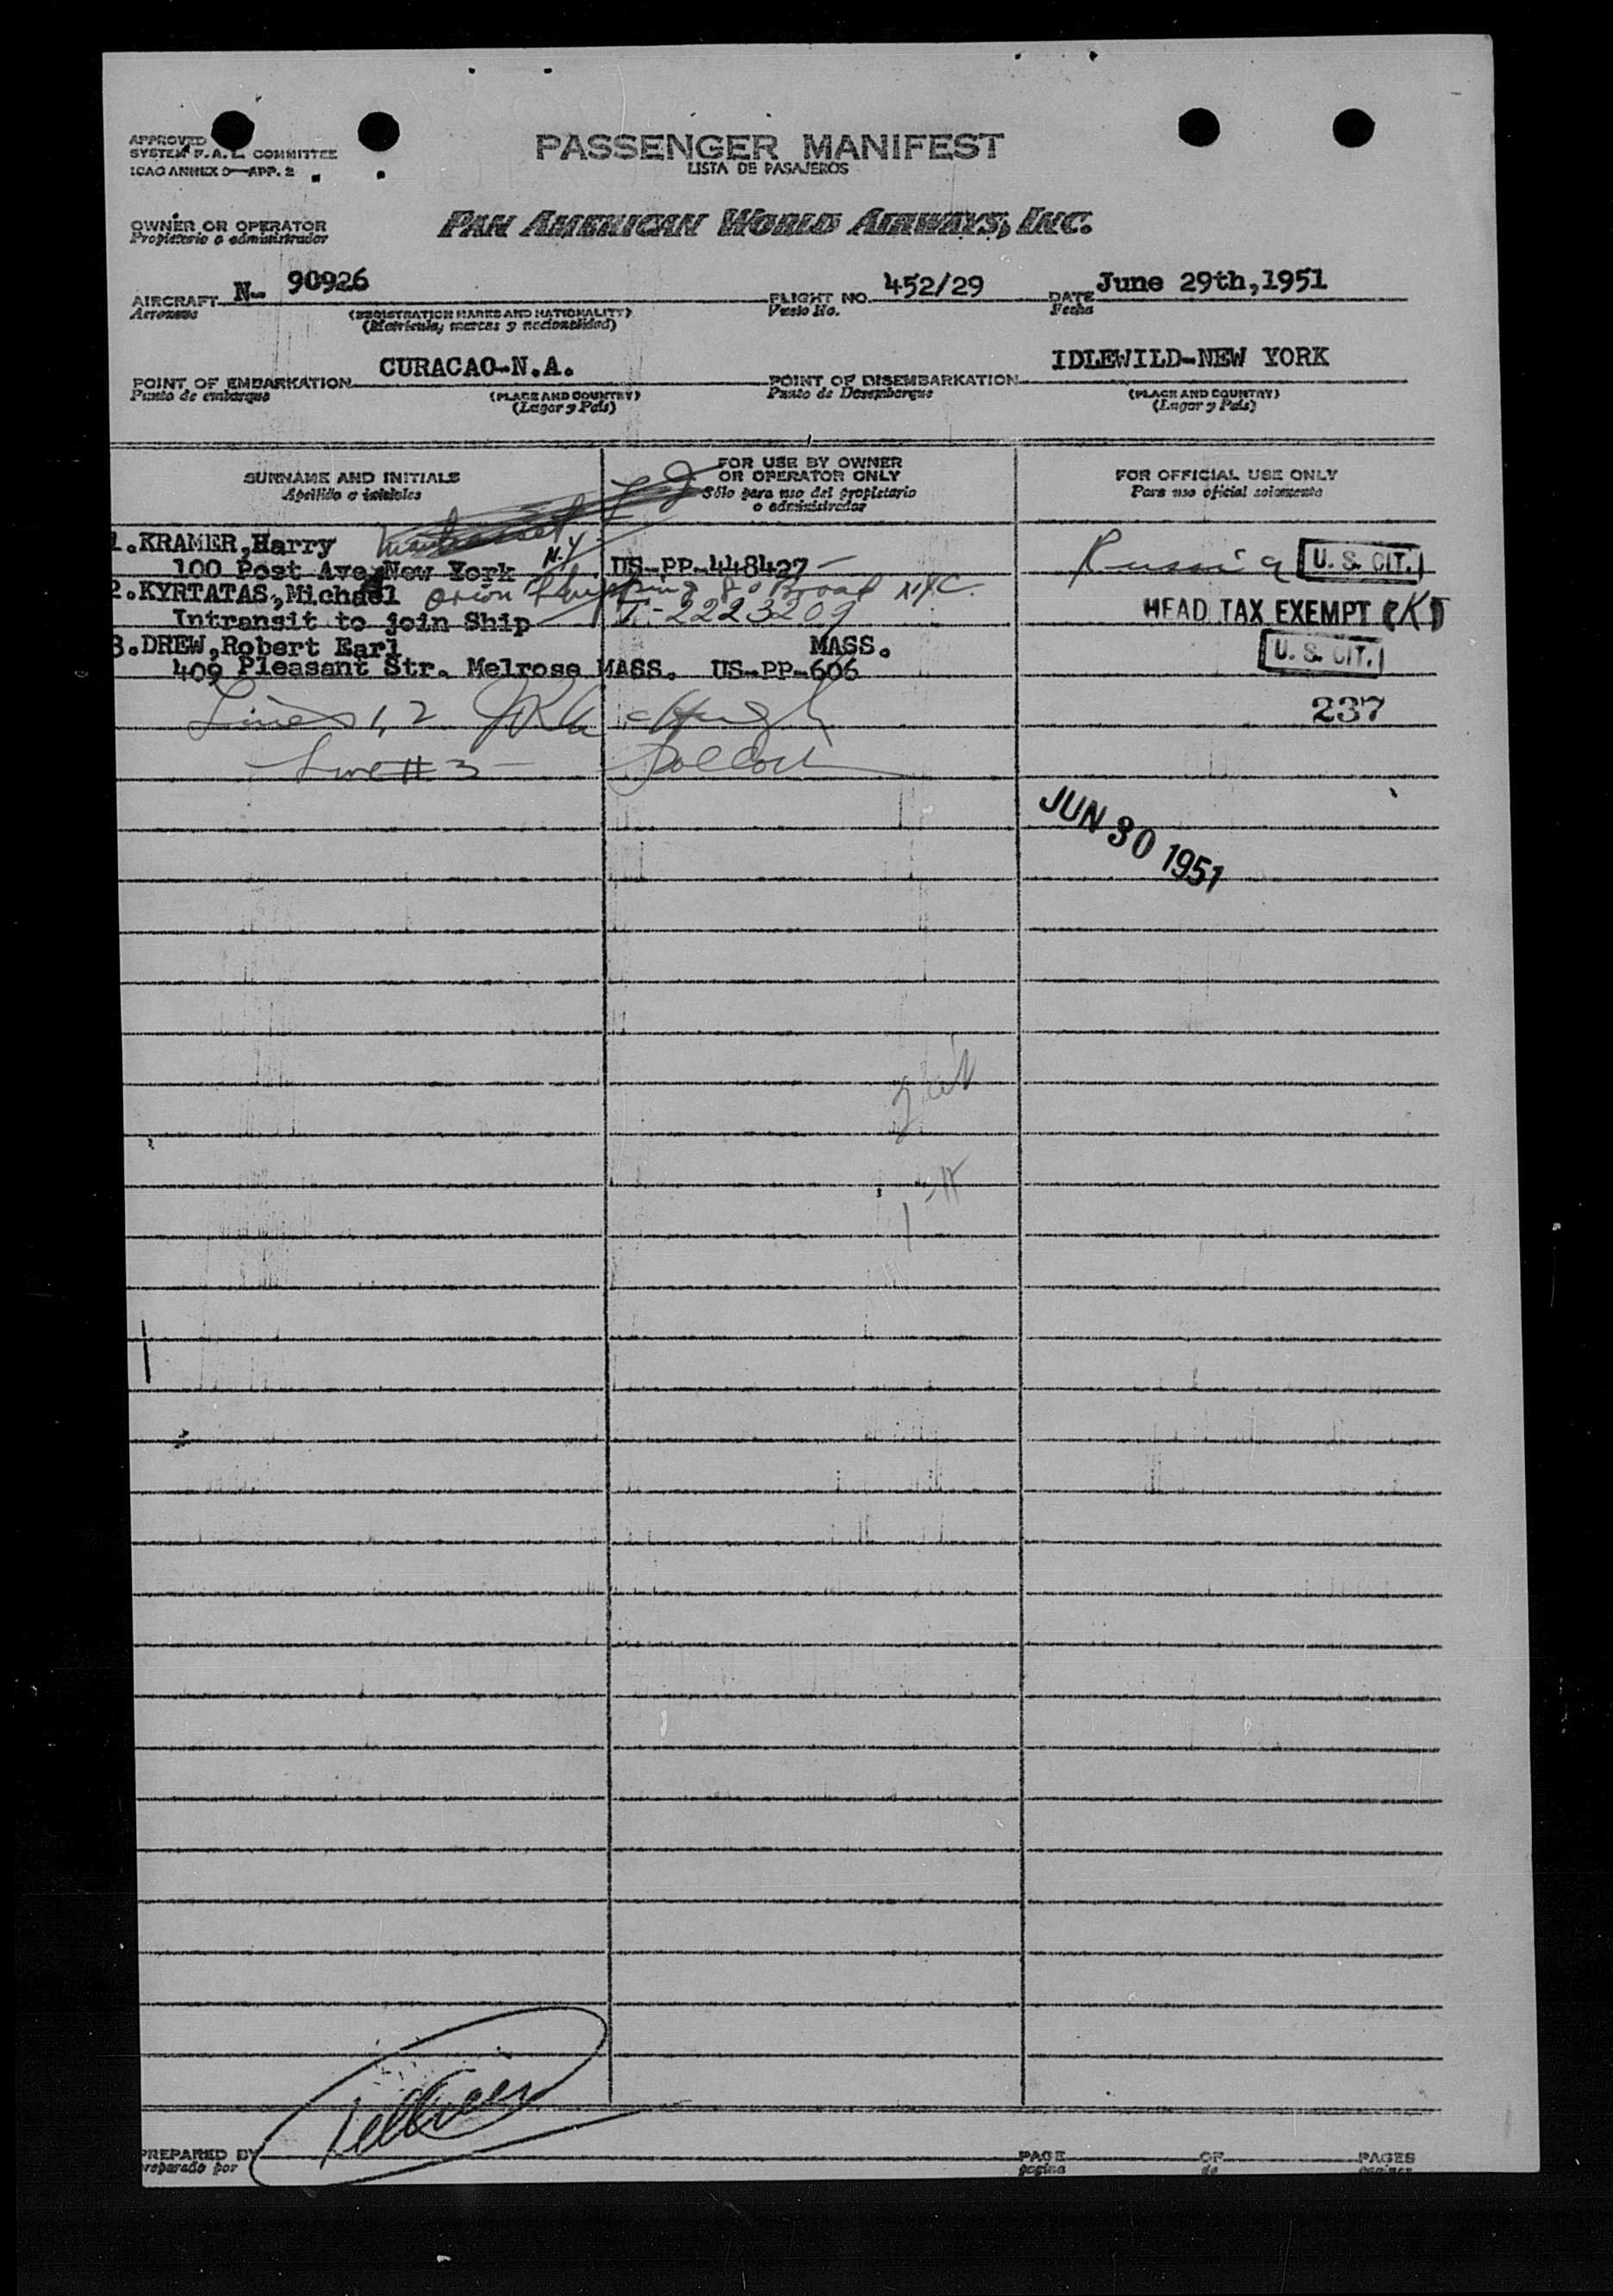 APPROVED
SYSTEM F.A.L. COMMITTEE
ICAO ANNEX 9—APP. 2
PASSENGER MANIFEST
LISTA DE PASAJEROS
OWNER OR OPERATOR
Propietario o administrador
PAN AMERICAN WORLD AIRWAYS, INC.
AIRCRAFT N- 90926 FLIGHT NO. 452/29 DATE June 29th,1951
Aeronave (REGISTRATION MARKS AND NATIONALITY) Vuelo No. Fecha
(Matrícula, marcas y nacionalidad)
POINT OF EMBARKATION CURACAO-N.A. POINT OF DISEMBARKATION IDLEWILD-NEW YORK
Punto de embarque (PLACE AND COUNTRY) Punto de Desembarque (PLACE AND COUNTRY)
(Lugar y País) (Lugar y País)
SURNAME AND INITIALS
Apellido e iniciales
FOR USE BY OWNER
OR OPERATOR ONLY
Sólo para uso del propietario
o administrador
FOR OFFICIAL USE ONLY
Para uso oficial solamente
1.KRAMER,Harry
100 Post Ave New York N.Y. US-PP-448427 Russia U. S. CIT.
2.KYRTATAS,Michael Orion Shipping 80 Broad N.Y.C.
Intransit to join Ship T-2223209 HEAD TAX EXEMPT
3.DREW,Robert Earl MASS. U. S. CIT.
409 Pleasant Str. Melrose MASS. US-PP-606
Lines 1, 2 237
Line # 3
JUN 30 1951
PREPARED BY PAGE OF PAGES
preparado por pagina de paginas